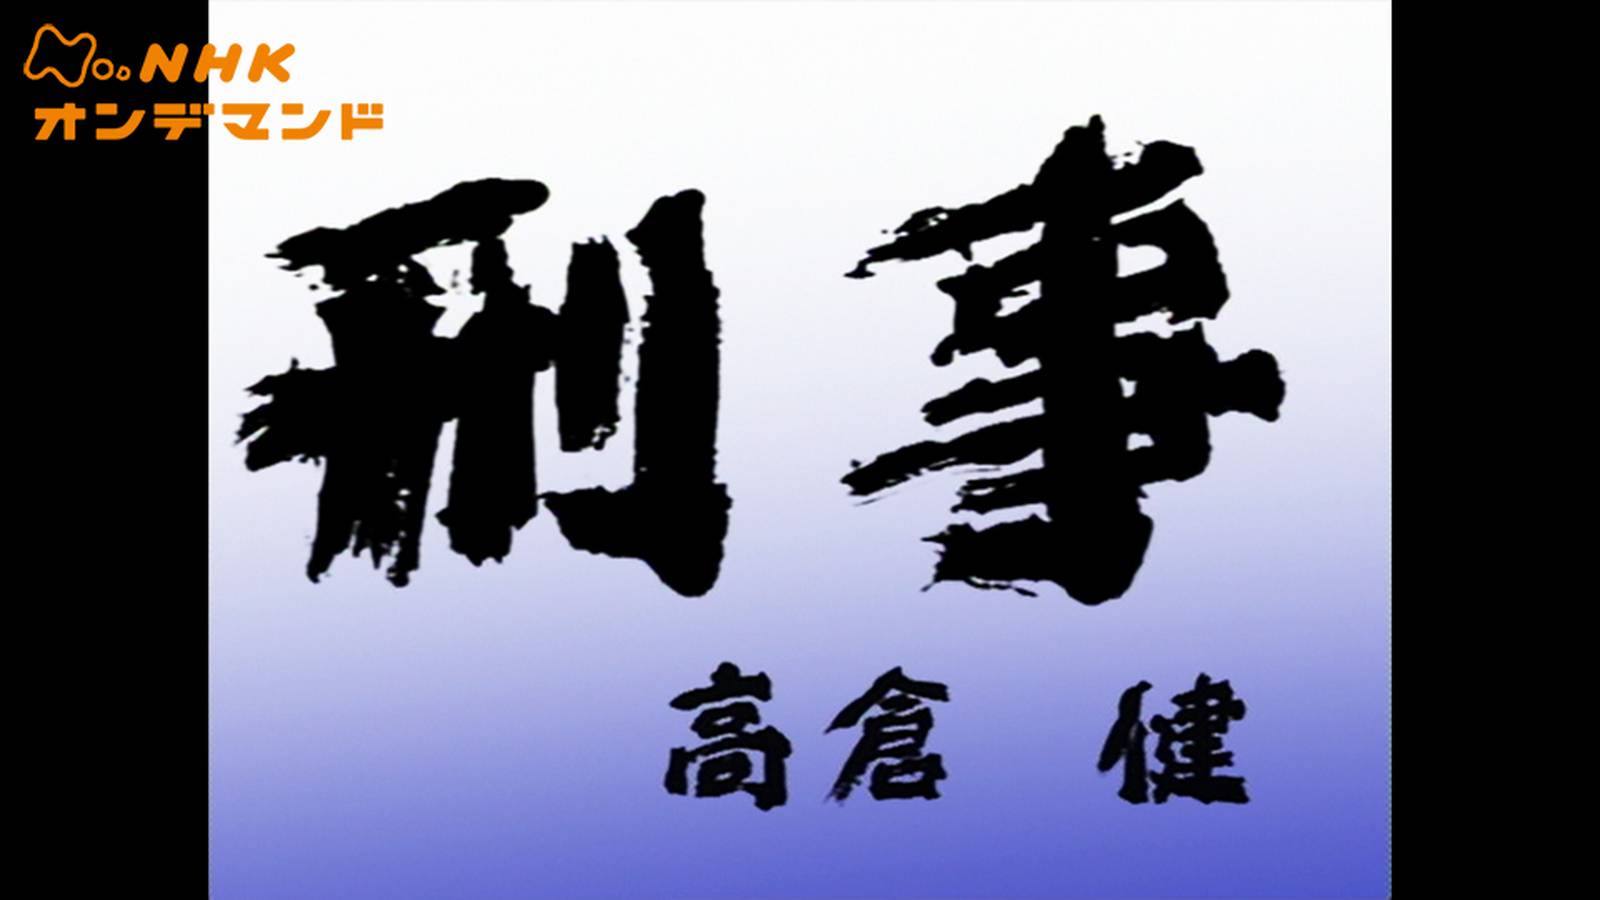 NHK
オンデマンド
刑事
高倉 健